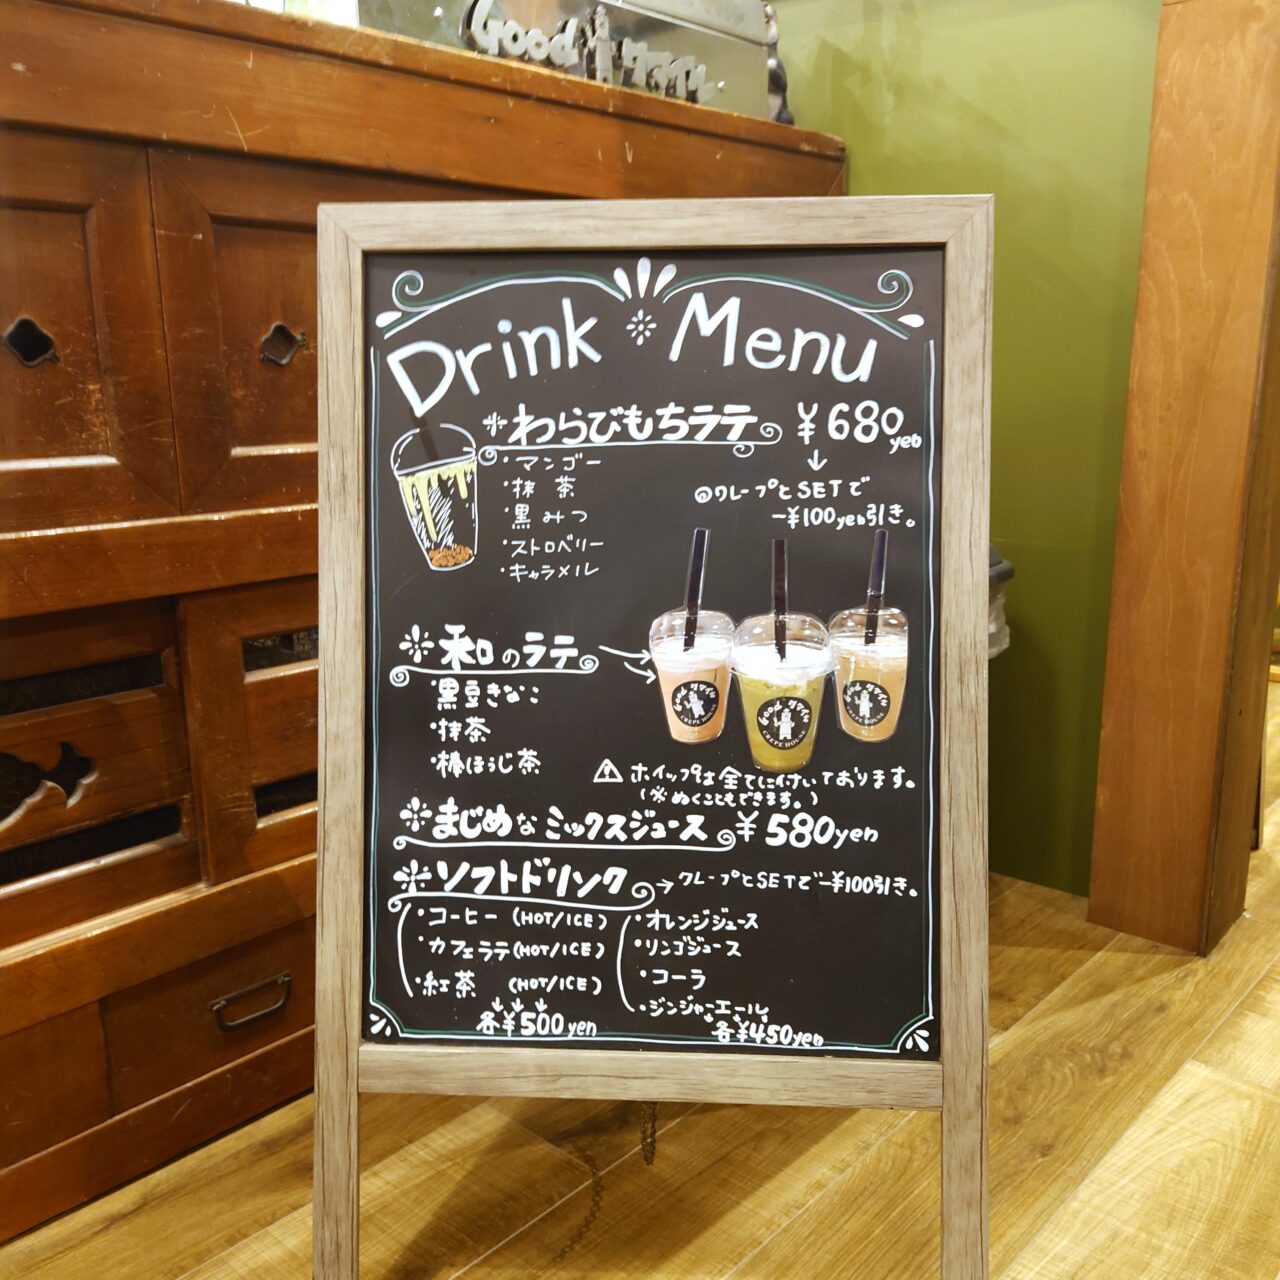 Good クマイル
Drink Menu
わらびもちラテ ¥680yen
・マンゴー
・抹茶
・黒みつ
・ストロベリー
・キャラメル
◎クレープとSETで
ー¥100yen引き。
和のラテ
・黒豆きなこ
・抹茶
・棒ほうじ茶
Good クマイル
CREPE HOUSE
Good クマイル
CREPE HOUSE
Good クマイル
CREPE HOUSE
⚠ ホイップは全てに付いております。
(※ぬくこともできます。)
まじめなミックスジュース ¥580yen
ソフトドリンク → クレープとSETでー¥100引き。
・コーヒー (HOT/ICE)
・カフェラテ (HOT/ICE)
・紅茶 (HOT/ICE)
各¥500yen
・オレンジジュース
・リンゴジュース
・コーラ
・ジンジャーエール
各¥450yen